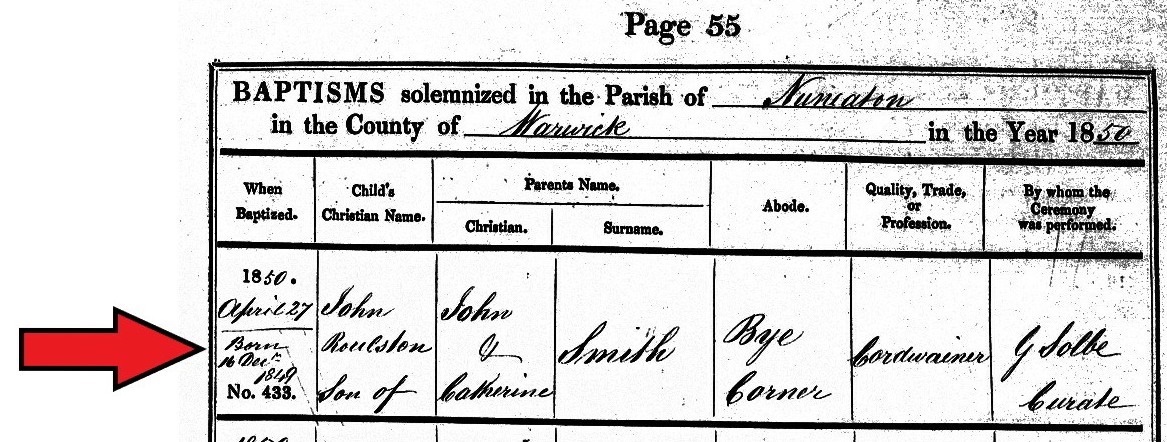 Page 55
BAPTISMS solemnized in the Parish of Nuneaton
in the County of Warwick in the Year 1850
When Baptized.
Child's Christian Name.
Parents Name.
Christian.
Surname.
Abode.
Quality, Trade, or Profession.
By whom the Ceremony was performed.
1850.
April 27
Born
16 Decr
1849
No. 433.
John
Roulston
Son of
John
&
Catherine
Smith
Bye
Corner
Cordwainer
G Solbe
Curate
1850